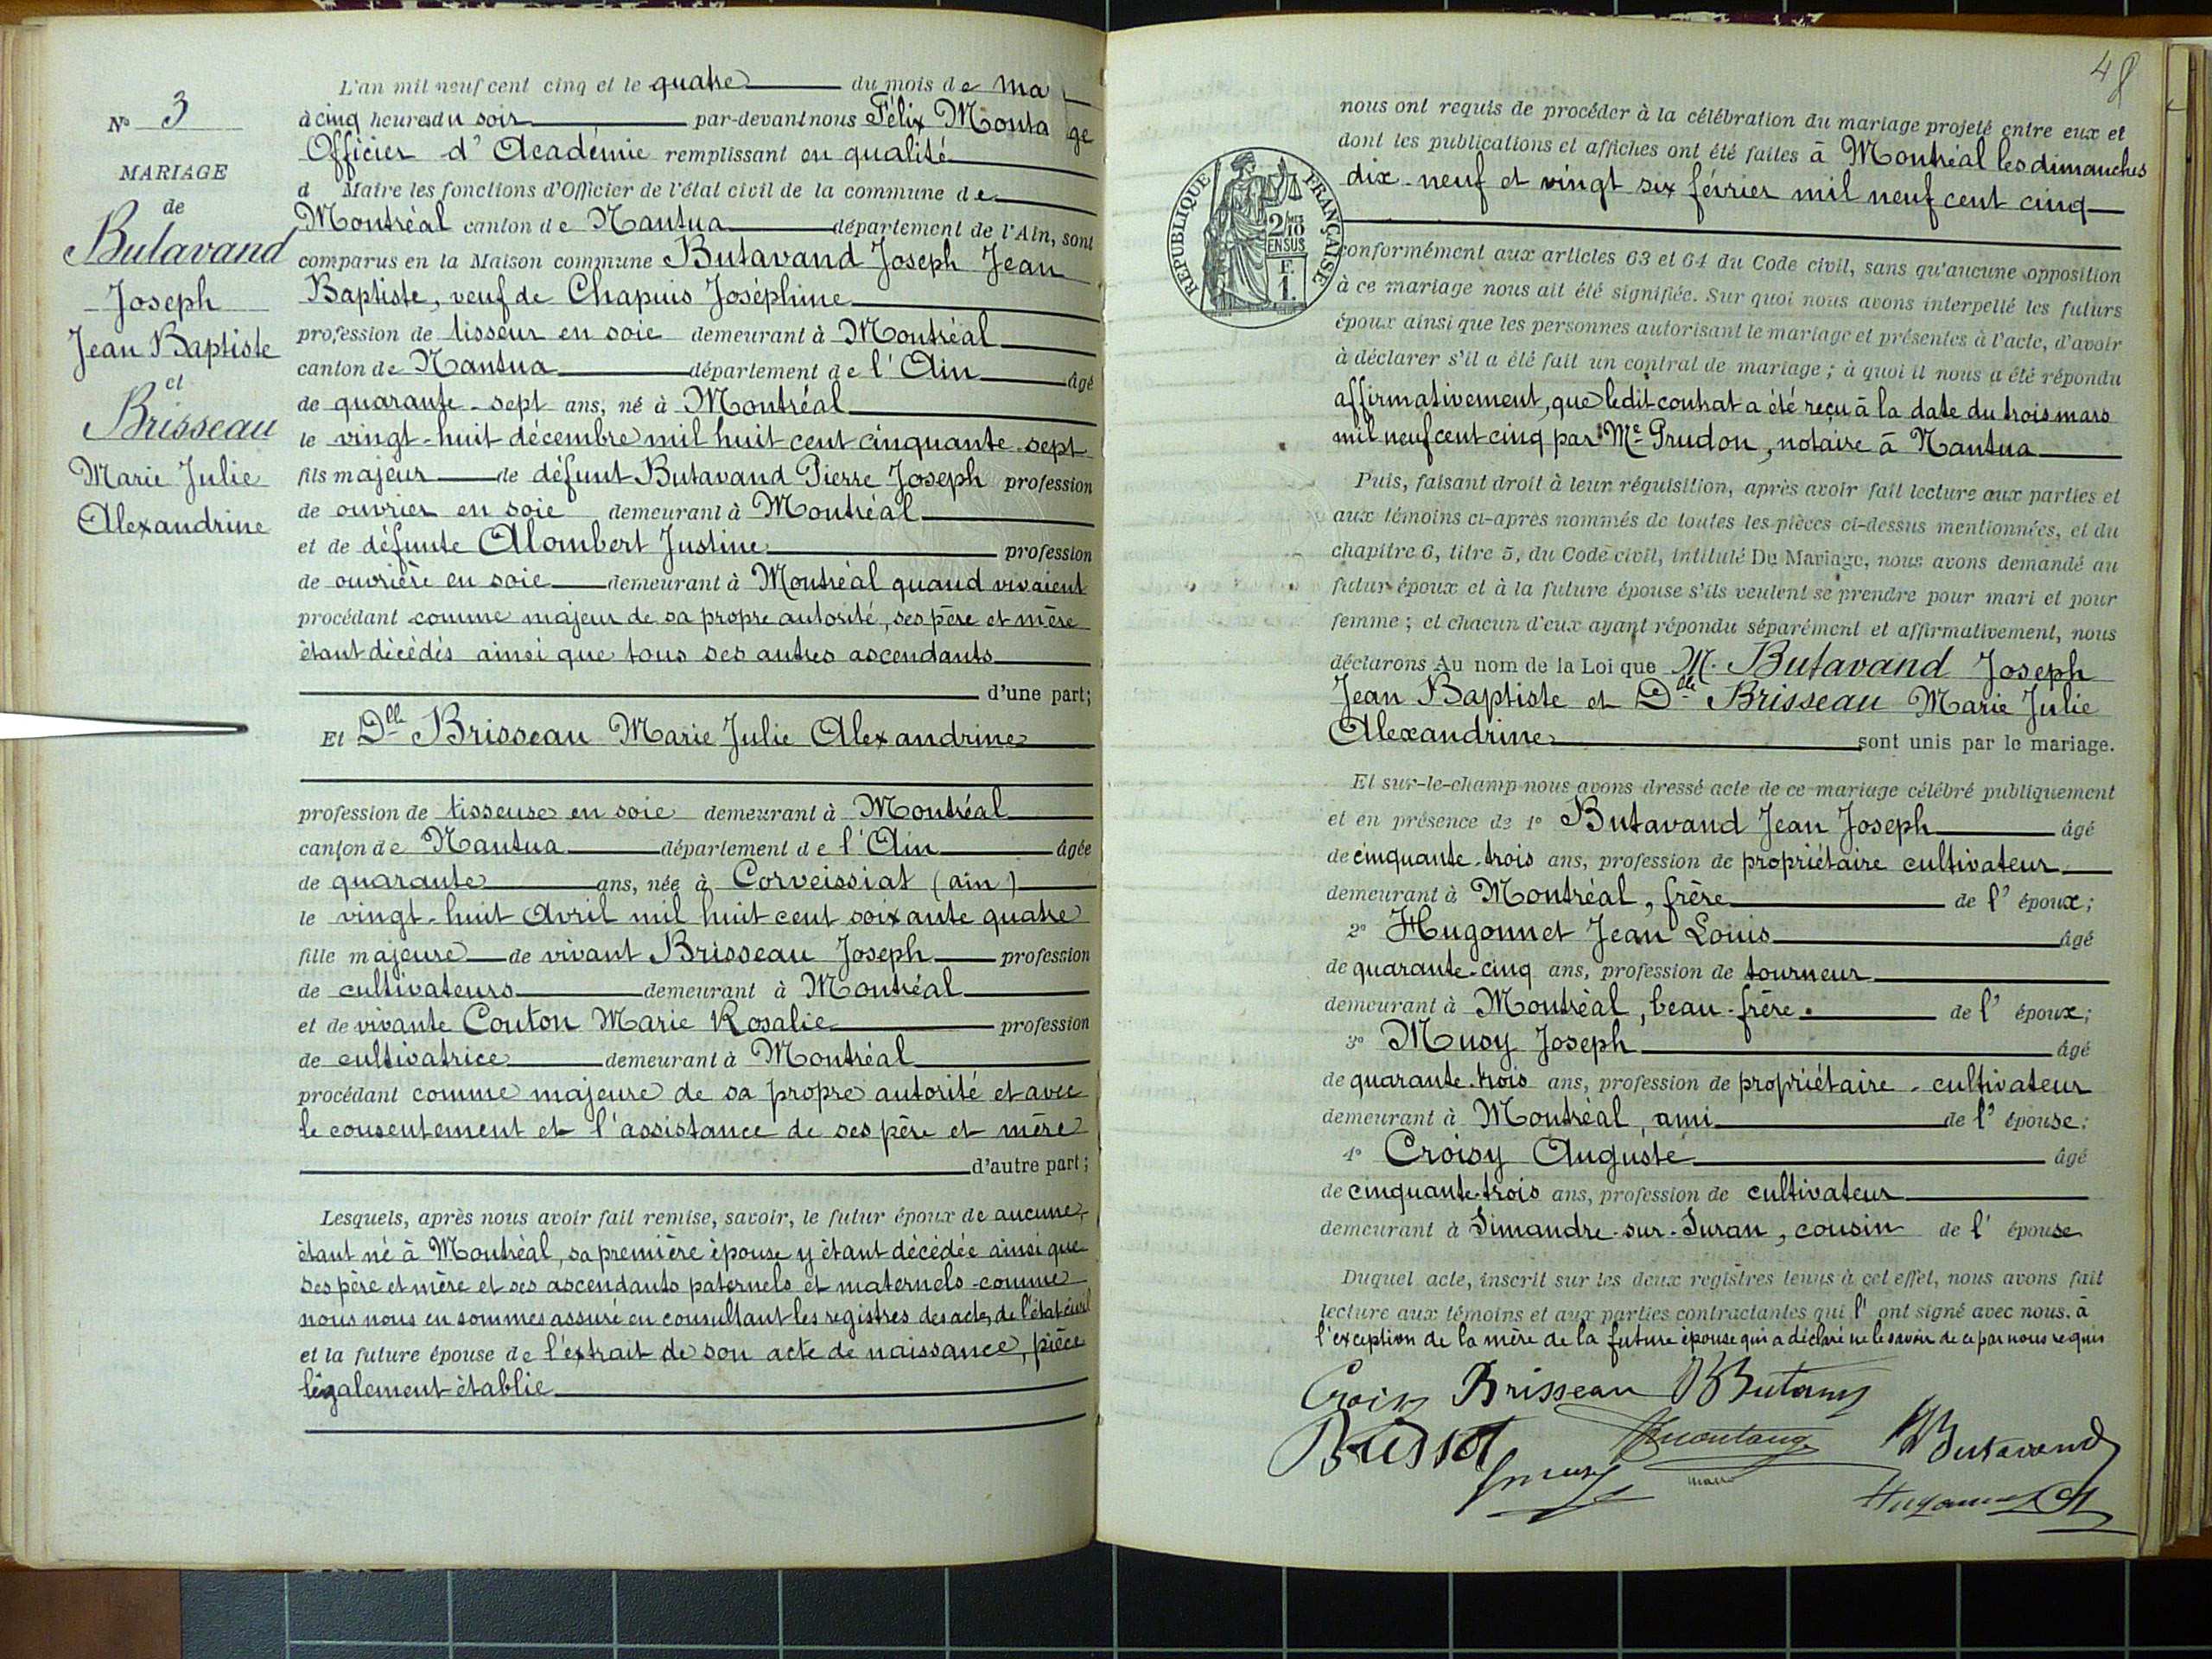 L'an mil neuf cent cinq et le quatre du mois de ma
à cinq heures du soir par-devant nous Félix Monta ge
Officier d'Académie remplissant en qualité
d Maire les fonctions d'Officier de l'état civil de la commune de
Montréal canton de Nantua département de l'Ain, sont
comparus en la Maison commune Butavand Joseph Jean
Baptiste, veuf de Chapuis Joséphine
profession de tisseur en soie demeurant à Montréal
canton de Nantua département de l'Ain âgé
de quarante-sept ans, né à Montréal
le vingt-huit décembre mil huit cent cinquante-sept
fils majeur de défunt Butavand Pierre Joseph profession
de ouvrier en soie demeurant à Montréal
et de défunte Alombert Justine profession
de ouvrière en soie demeurant à Montréal quand vivaient
procédant comme majeur de sa propre autorité, ses père et mère
étant décédés ainsi que tous ses autres ascendants
d'une part;
Et Dlle Brisseau Marie Julie Alexandrine
profession de tisseuse en soie demeurant à Montréal
canton de Nantua département de l'Ain âgée
de quarante ans, née à Corveissiat (ain)
le vingt-huit Avril mil huit cent soixante quatre
fille majeure de vivant Brisseau Joseph profession
de cultivateurs demeurant à Montréal
et de vivante Couton Marie Rosalie profession
de cultivatrice demeurant à Montréal
procédant comme majeure de sa propre autorité et avec
le consentement et l'assistance de ses père et mère
d'autre part;
Lesquels, après nous avoir fait remise, savoir, le futur époux de aucune,
étant né à Montréal, sa première épouse y étant décédée ainsi que
ses père et mère et ses ascendants paternels et maternels comme
nous nous en sommes assuré en consultant les registres des actes de l'état civil
et la future épouse de l'extrait de son acte de naissance, pièce
légalement établie
N° 3
MARIAGE
de
Butavand
Joseph
Jean Baptiste
et
Brisseau
Marie Julie
Alexandrine
48
nous ont requis de procéder à la célébration du mariage projeté entre eux et
dont les publications et affiches ont été faites à Montréal les dimanches
dix-neuf et vingt six février mil neuf cent cinq
RÉPUBLIQUE FRANÇAISE
2/10 EN SUS
F. 1.
conformément aux articles 63 et 64 du Code civil, sans qu'aucune opposition
à ce mariage nous ait été signifiée. Sur quoi nous avons interpellé les futurs
époux ainsi que les personnes autorisant le mariage et présentes à l'acte, d'avoir
à déclarer s'il a été fait un contrat de mariage; à quoi il nous a été répondu
affirmativement, que ledit contrat a été reçu à la date du trois mars
mil neuf cent cinq par Me Prudon, notaire à Nantua
Puis, faisant droit à leur réquisition, après avoir fait lecture aux parties et
aux témoins ci-après nommés de toutes les pièces ci-dessus mentionnées, et du
chapitre 6, titre 5, du Code civil, intitulé Du Mariage, nous avons demandé au
futur époux et à la future épouse s'ils veulent se prendre pour mari et pour
femme; et chacun d'eux ayant répondu séparément et affirmativement, nous
déclarons Au nom de la Loi que M. Butavand Joseph
Jean Baptiste et Dlle Brisseau Marie Julie
Alexandrine sont unis par le mariage.
Et sur-le-champ nous avons dressé acte de ce mariage célébré publiquement
et en présence de 1° Butavand Jean Joseph âgé
de cinquante-trois ans, profession de propriétaire cultivateur
demeurant à Montréal, frère de l'époux;
2° Hugonnet Jean Louis âgé
de quarante-cinq ans, profession de tourneur
demeurant à Montréal, beau-frère de l'époux;
3° Musy Joseph âgé
de quarante-trois ans, profession de propriétaire-cultivateur
demeurant à Montréal, ami de l'épouse;
4° Croisy Auguste âgé
de cinquante-trois ans, profession de cultivateur
demeurant à Simandre-sur-Suran, cousin de l'épouse
Duquel acte, inscrit sur les deux registres tenus à cet effet, nous avons fait
lecture aux témoins et aux parties contractantes qui l'ont signé avec nous. à
l'exception de la mère de la future épouse qui a déclaré ne le savoir de ce par nous requis
Brisseau
Butavand